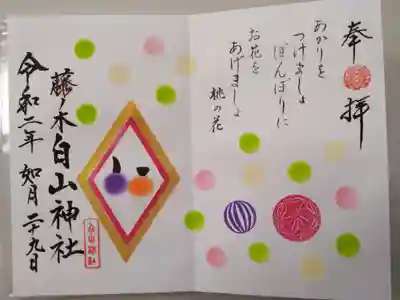 奉拝
あかりを
つけましょ
ぼんぼりに
お花を
あげましょ
桃の花
藤ノ木白山神社
令和二年 如月 二十九日